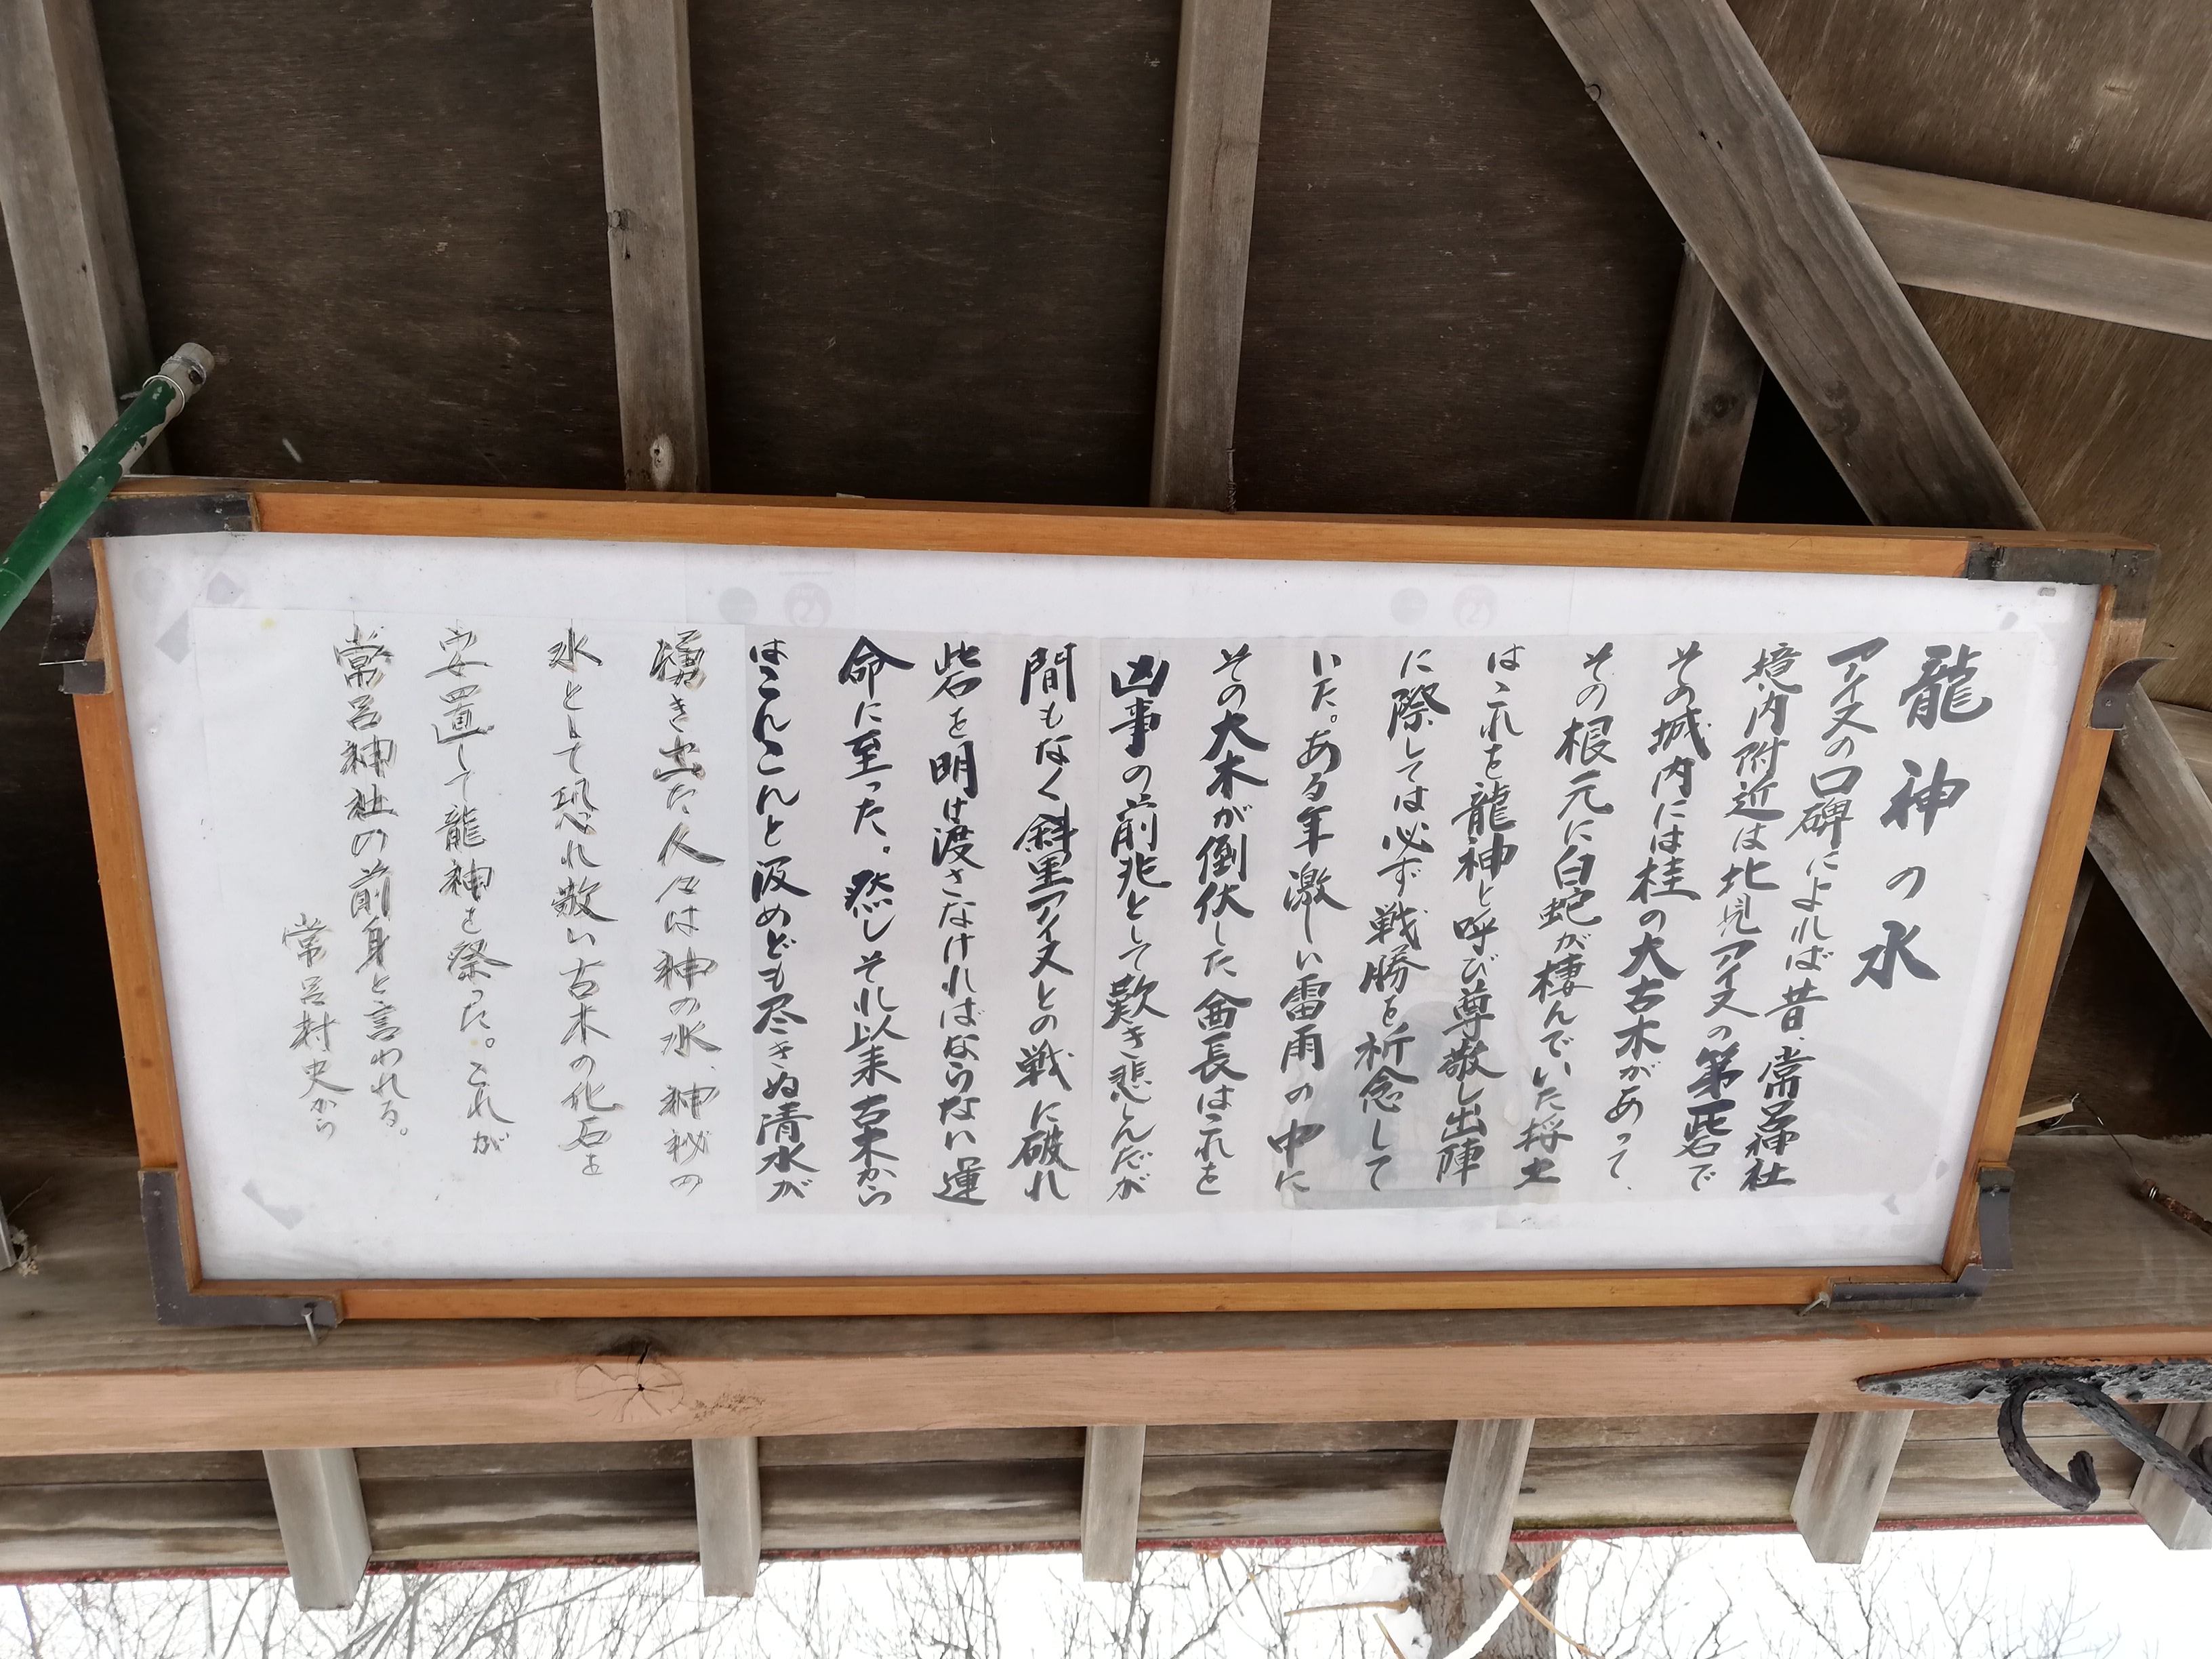 龍神の水
アイヌの口碑によれば昔、常呂神社
境内附近は北見アイヌの第一砦で
その城内には桂の大古木があって、
その根元に白蛇が棲んでいた将士
はこれを龍神と呼び尊敬し出陣
に際しては必ず戦勝を祈念して
いた。ある年激しい雷雨の中に
その大木が倒伏した酋長はこれを
凶事の前兆として歎き悲しんだが
間もなく斜里アイヌとの戦に破れ
砦を明け渡さなければならない運
命に至った。然しそれ以来古木から
はこんこんと汲めども尽きぬ清水が
湧き出た人々は神の水、神秘の
水として恐れ敬い古木の化石を
安置して龍神を祭った。これが
常呂神社の前身と言われる。
常呂村史から